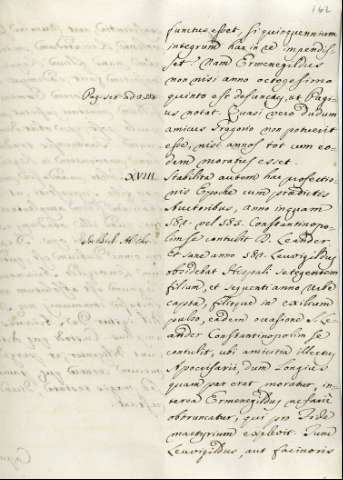 162
functus esset, si quinquennium
integrum hac in re impendis-
set? Nam Ermenegildus
non nisi anno octogesimo
Pag. sec. ad a. 584.
quinto est defunctus, ut Pag-
ius notat. Quasi vero dudum
amicus non potuerit
esse, nisi annos tot cum eo-
dem moratus esset.
XVIII.
Stabilita autem hac profectio-
nis Epocha cum praedictis
Auctoribus, anno inquam
584. vel 585. Constantinopo-
lim se contulit D. Leander
et sane anno 584. Leuvigildus
obsidebat Hispali se tegentem
filium, et sequenti anno Urbe
capta, filioque in exilium
pulso, eadem occasione S. Le-
ander Constantinopolim se
contulit, ubi amicitia illectus
Apocrisarii, dum longius
quam par erat, moratur, in-
terea Ermenegildus nefarie
obtruncatur, qui pro Fide
martyrium explevit. Tunc
Leuvigildus, aut facinoris